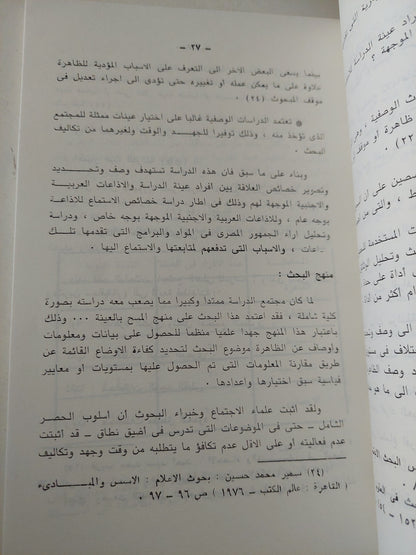 - ٢٧ -
سينما يسعى البعض الاخر الى التعرف على الاسباب المؤدية للظاهرة
علاوة على ما يمكن عمله أو تغييره حتى تؤدى الى اجراء تعديل فى
موقف المبحوث (٢٤) .
* تعتمد الدراسات الوصفية غالبا على اختيار عينات ممثلة للمجتمع
الذى تؤخذ منه ، وذلك توفيرا للجهد والوقت ولغيرهما من تكاليف
البحث .
وبناء على ما سبق فان هذه الدراسة تستهدف وصف وتحديد
وتصوير خصائص العلاقة بين أفراد عينة الدراسة والاذاعات العربية
والاجنبية الموجهة لهم وذلك فى اطار دراسة خصائص الاستماع للاذاعة
بوجه عام ، وللاذاعات العربية والاجنبية الموجهة بوجه خاص ، ودراسة
وتحليل اراء الجمهور المصرى فى المواد والبرامج التى تقدمها تلك
اعات ، والاسباب التى تدفعهم لمتابعتها والاستماع اليها .
منهج البحث :
لما كان مجتمع الدراسة ممتدا وكبيرا مما يصعب معه دراسته بصورة
كلية شاملة ، فقد اعتمد هذا البحث على منهج المسح بالعينة ... وذلك
باعتبار هذا المنهج جهدا علميا منظما للحصول على بيانات ومعلومات
وأوصاف عن الظاهرة موضوع البحث لتحديد كفاءة الاوضاع القائمة عن
طريق مقارنة المعلومات التى تم الحصول عليها بمستويات أو معايير
قياسية سبق اختيارها وأعدادها .
ولقد أثبت علماء الاجتماع وخبراء البحوث أن اسلوب الحصر
الشامل ـ حتى فى الموضوعات التى تدرس فى أضيق نطاق ـ قد أثبتت
عدم فعاليته أو على الاقل عدم تكافؤ ما يتطلبه من وقت وجهد وتكاليف
(٢٤) سمير محمد حسين : بحوث الاعلام : الاسس والمبادىء
( القاهرة : عالم الكتب - ١٩٧٦ ) ص ٩٦ - ٩٧ .